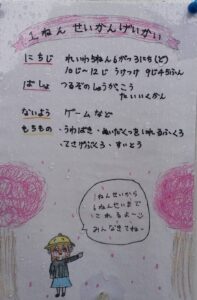 1ねんせいかんげいかい
にちじ れいわ5ねん6がつ3にち(ど)
10じ~12じ うけつけ 9じ45ふん
ばしょ つるぞのしょうがっこう
たいいくかん
ないよう ゲームなど
もちもの・うわばき・ぬいだくつをいれるふくろ
・てさげぶくろ・すいとう
1ねんせいから
6ねんせいまで
これるよ〜
みんなきてね。